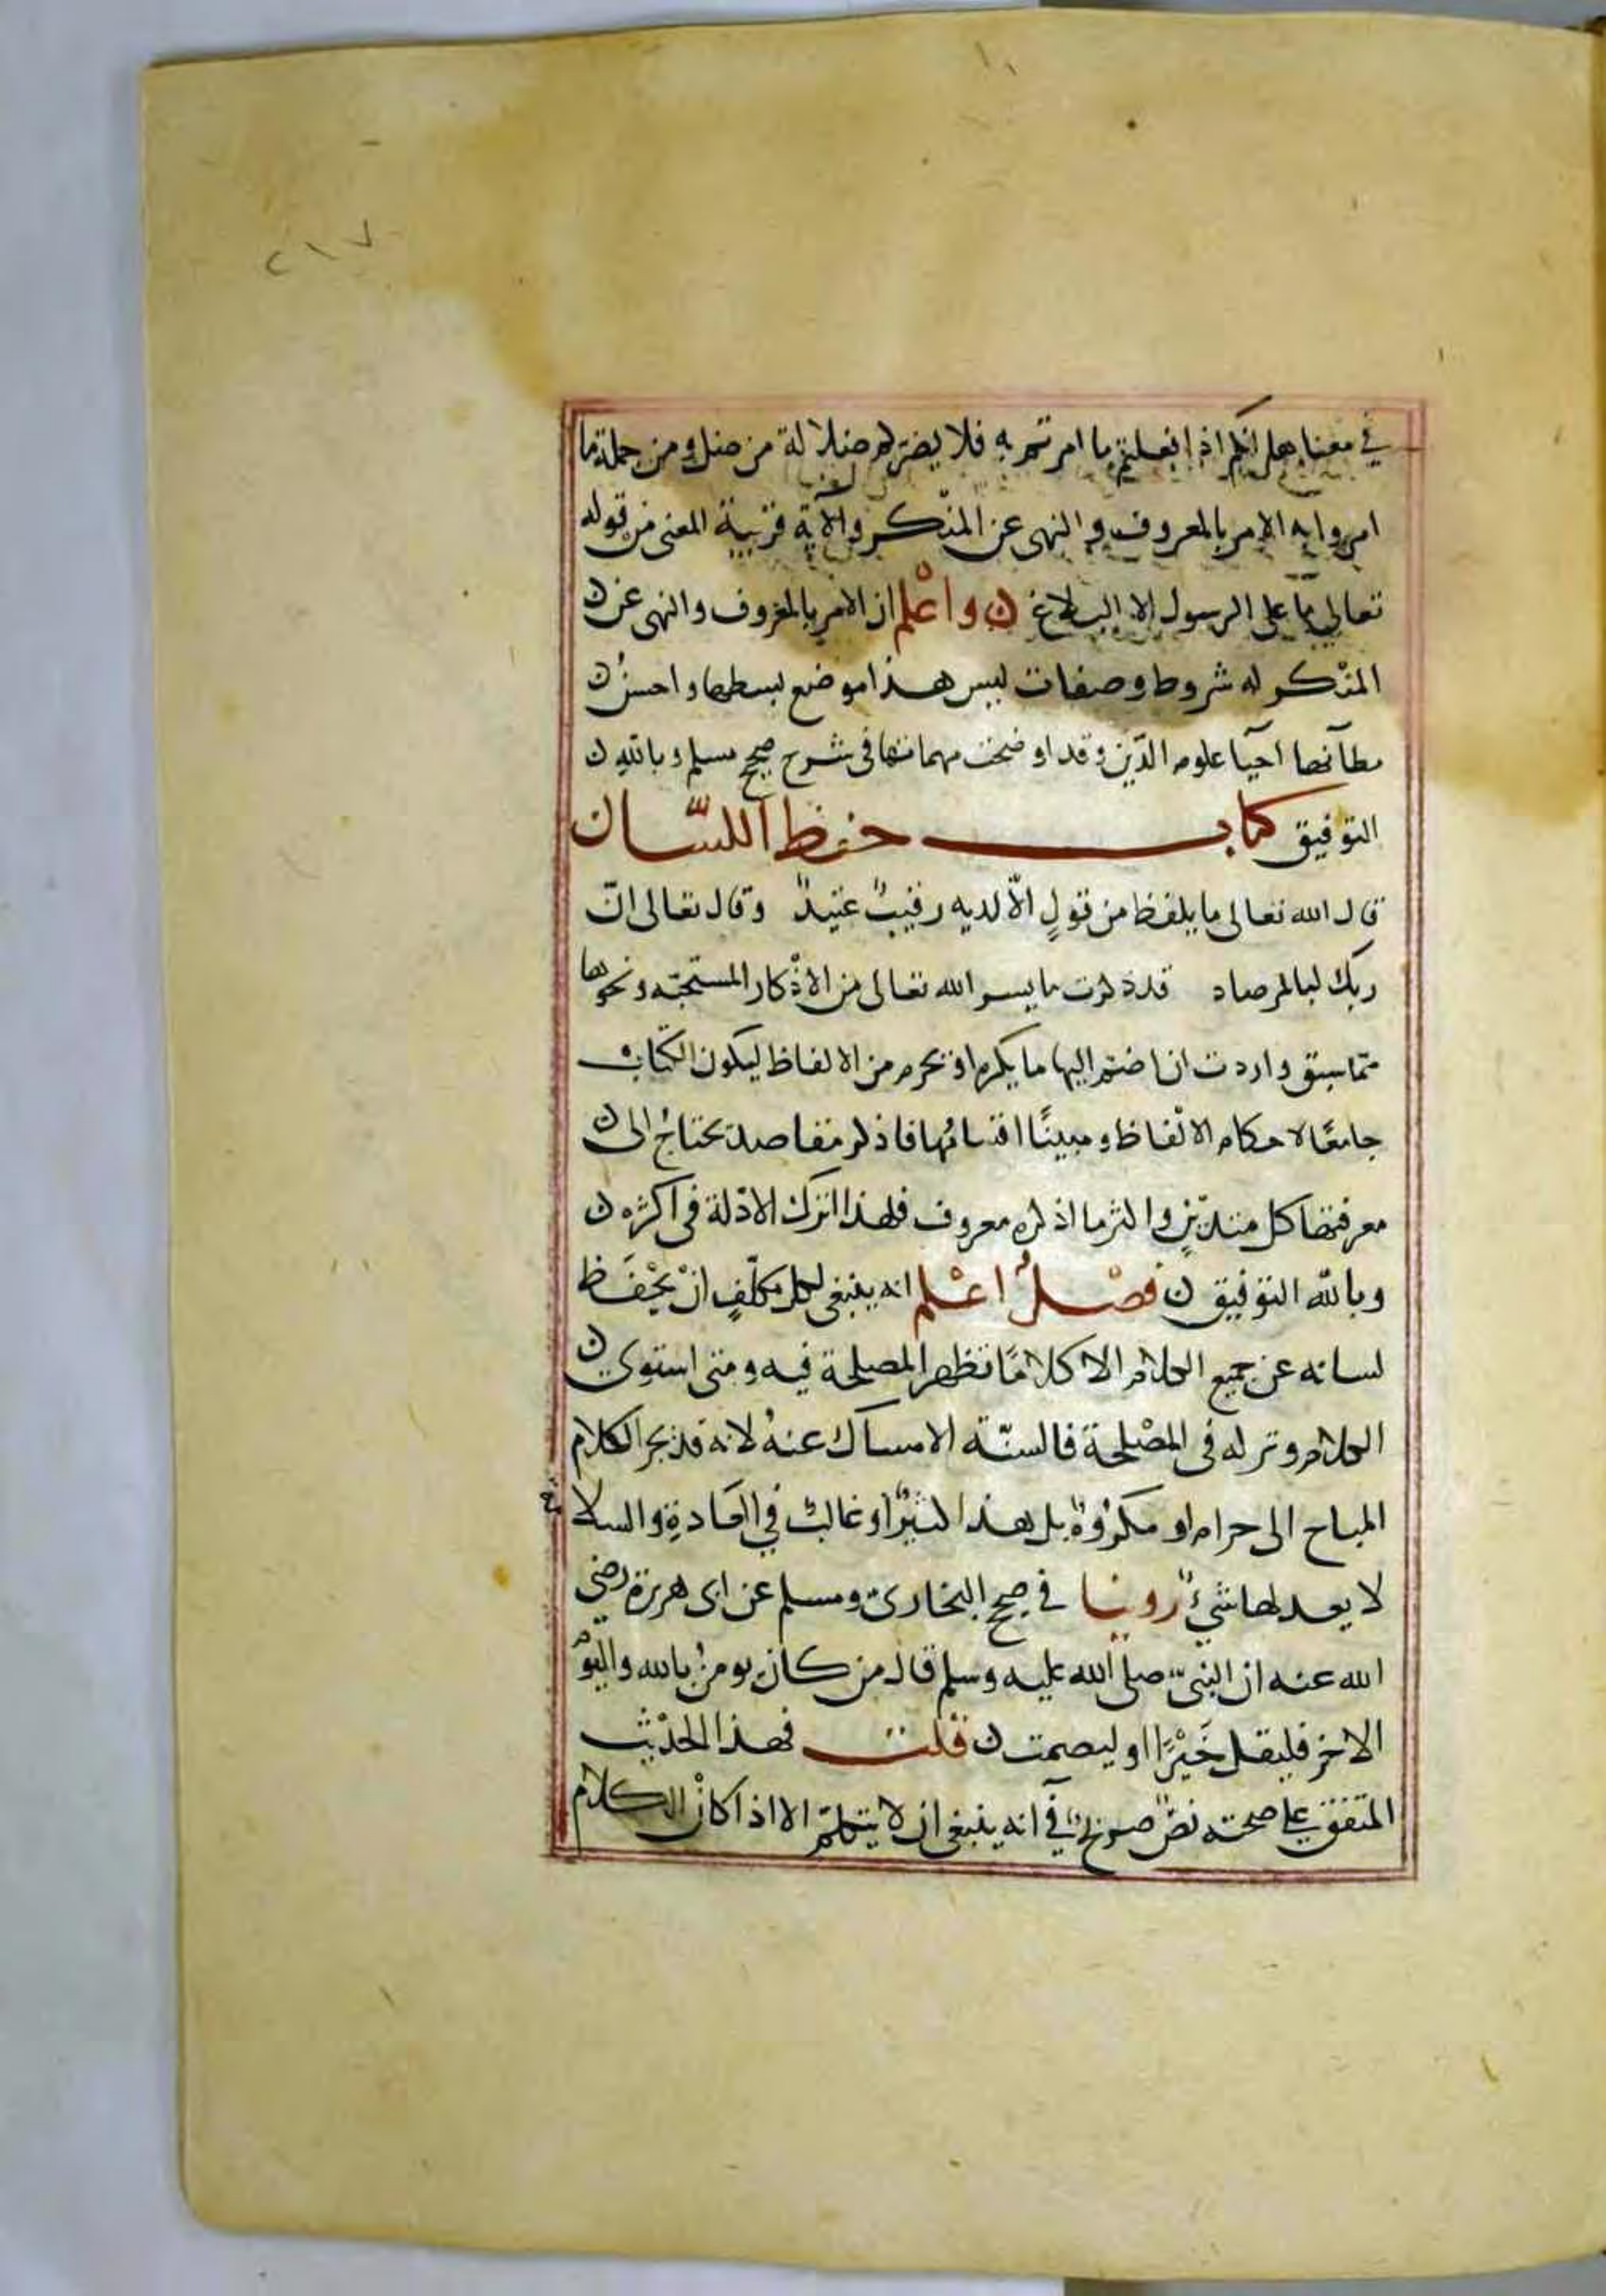 ٢١٧
في معناها انكم اذا فعلتم ما امرتم به فلا يضركم ضلالة من ضل ومن جملة ما
امروا به الامر بالمعروف والنهى عن المنكر والآية قريبة المعنى من قوله
تعالى ما على الرسول الا البلاغ ن واعْلم ان الامر بالمعروف والنهى عن ن
المنْكر له شروط وصفات ليس هذا موضع بسطها واحسنُ ن
مظآنها احيآ علوم الدّين وقد اوضحت مهماتها فى شرح صحيح مسلم وبالله ن
التوفيق كتاب حفظ اللسّان
قال الله تعالى ما يلفظ من قولٍ الّا لديه رقيبٌ عتيدٌ وقال تعالى انّ
ربك لبالمرصاد قد ذكرت ما يسر الله تعالى من الاذْكار المستحبّه ونحوها
ممّا سبق واردت ان اضم اليها ما يكره او يحرم من الالفاظ ليكون الكتاب
جامعًا لاحكام الالْفاظ ومبينًا اقسامُها فاذكر مقاصد يحتاجُ الى ن
معرفتها كل متديّنٍ واكثر ما اذكره معروف فلهذا اترك الادّلة فى اكثره ن
وبالله التوفيق ن فصْلُ اعْلم انه ينبغى لكل مكلّفٍ انْ يحْفَظ
لسانه عن جميع الكلام الا كلامًا تظهر المصلحة فيه ومتى استوى ن
الكلام وتركه فى المصْلحة فالسنّة الامساك عنهُ لانه قد يجر الكلام
المباح الى حرام او مكروهٍ بل هذا كثيرٌ او غالبٌ في العَادةِ والسلامة
لا يعدلها شيءٌ روينا في صحيح البخارى ومسلم عن ابى هريرة رضي
الله عنه ان النبىّ صلى الله عليه وسلم قال من كان يومنُ بالله واليوْم
الاخر فليقل خَيْرًا او ليصمت ن قلت فهذا الحدْيث
المتفق على صحته نصٌ صريحٌ في انه ينبغى ان لا يتكلّم الا اذا كانْ الكلام